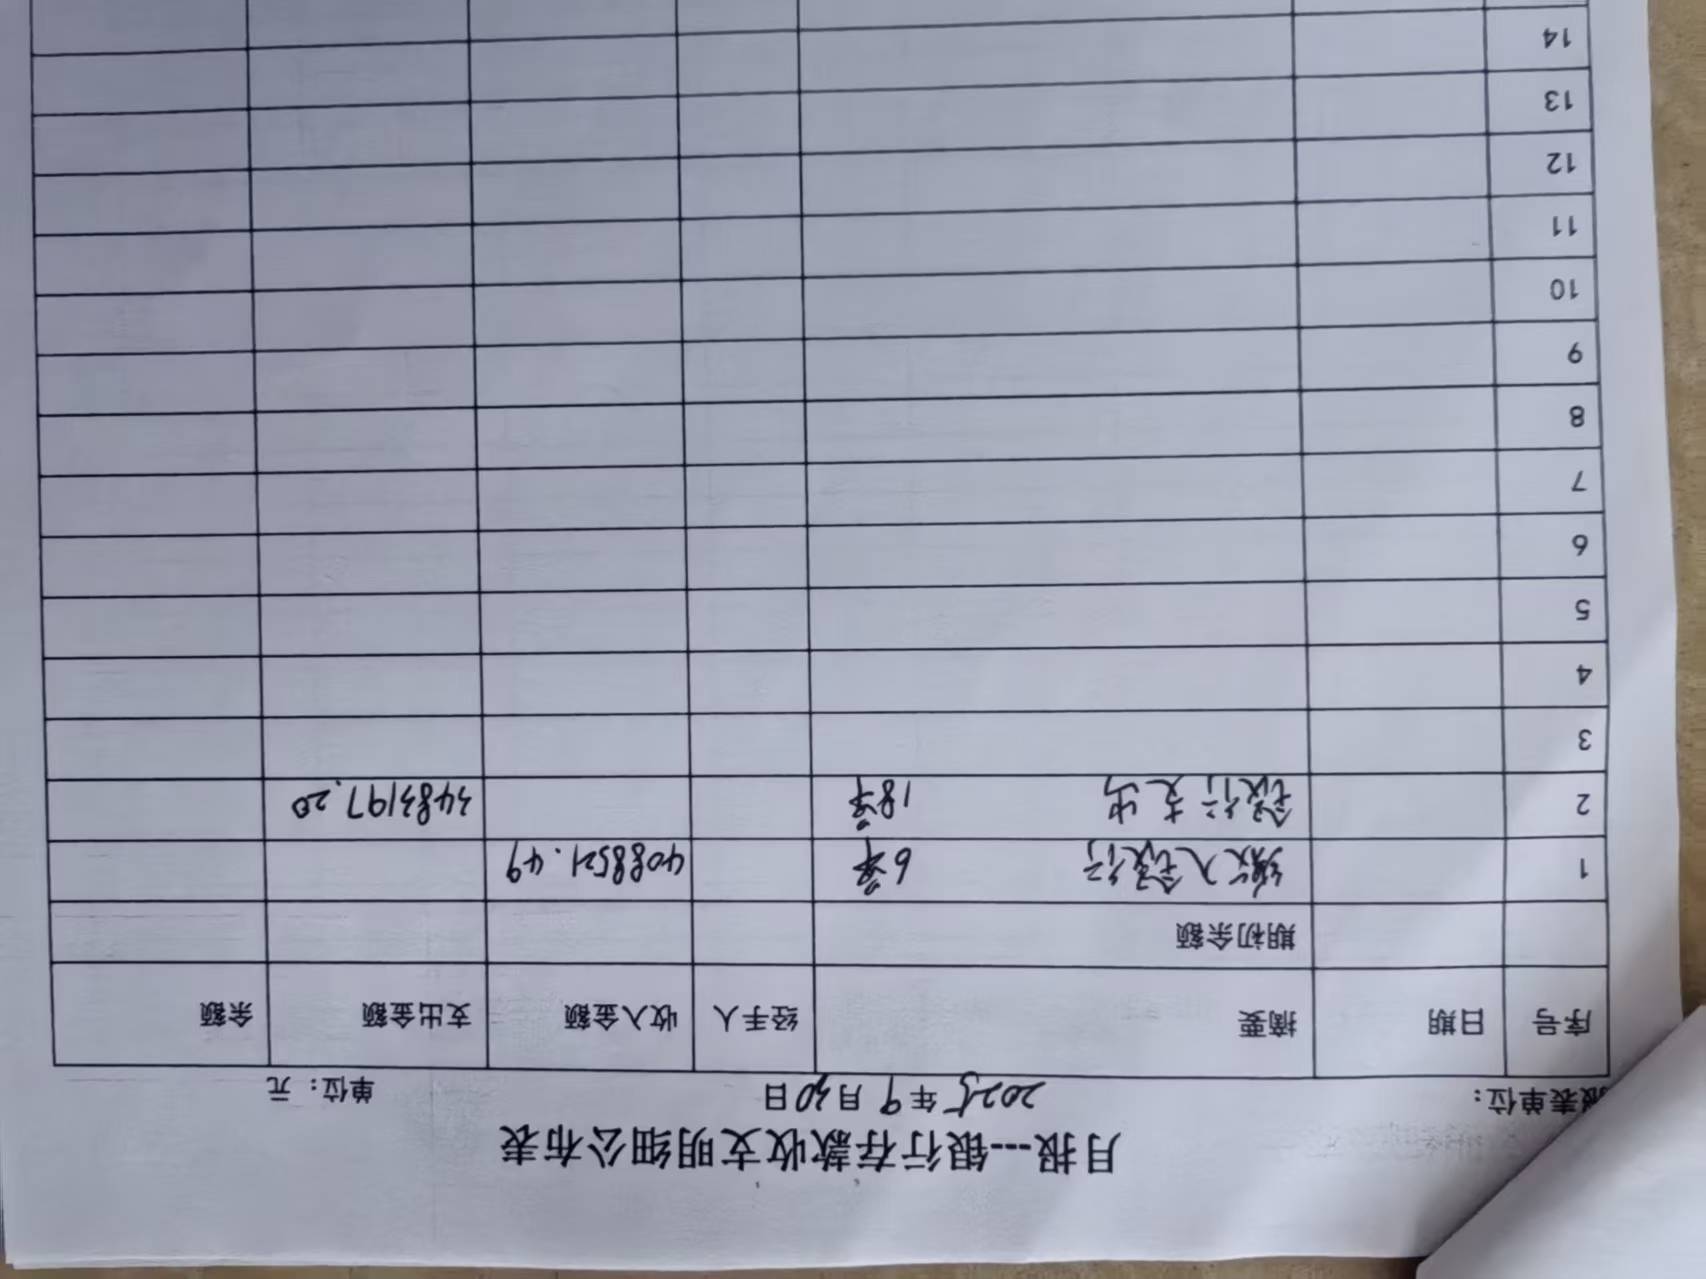 月报---银行存款收支明细公布表
报表单位： 2025年9月30日 单位：元
序号 日期 摘要 经手人 收入金额 支出金额 余额
期初余额
1 缴入银行 6笔 4088521.49
2 银行支出 18笔 3483197.20
3
4
5
6
7
8
9
10
11
12
13
14